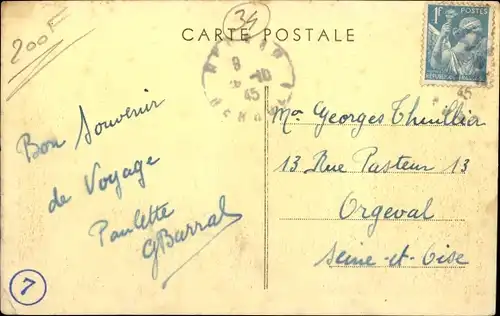 200F
34
CARTE POSTALE
POSTES
1F
RÉPUBLIQUE FRANÇAISE
8
10
45
45
Bon Souvenir
de Voyage
Paulette
GBarral
Mr Georges Thuillier
13 Rue Pasteur 13
Orgeval
Seine-et-Oise
7